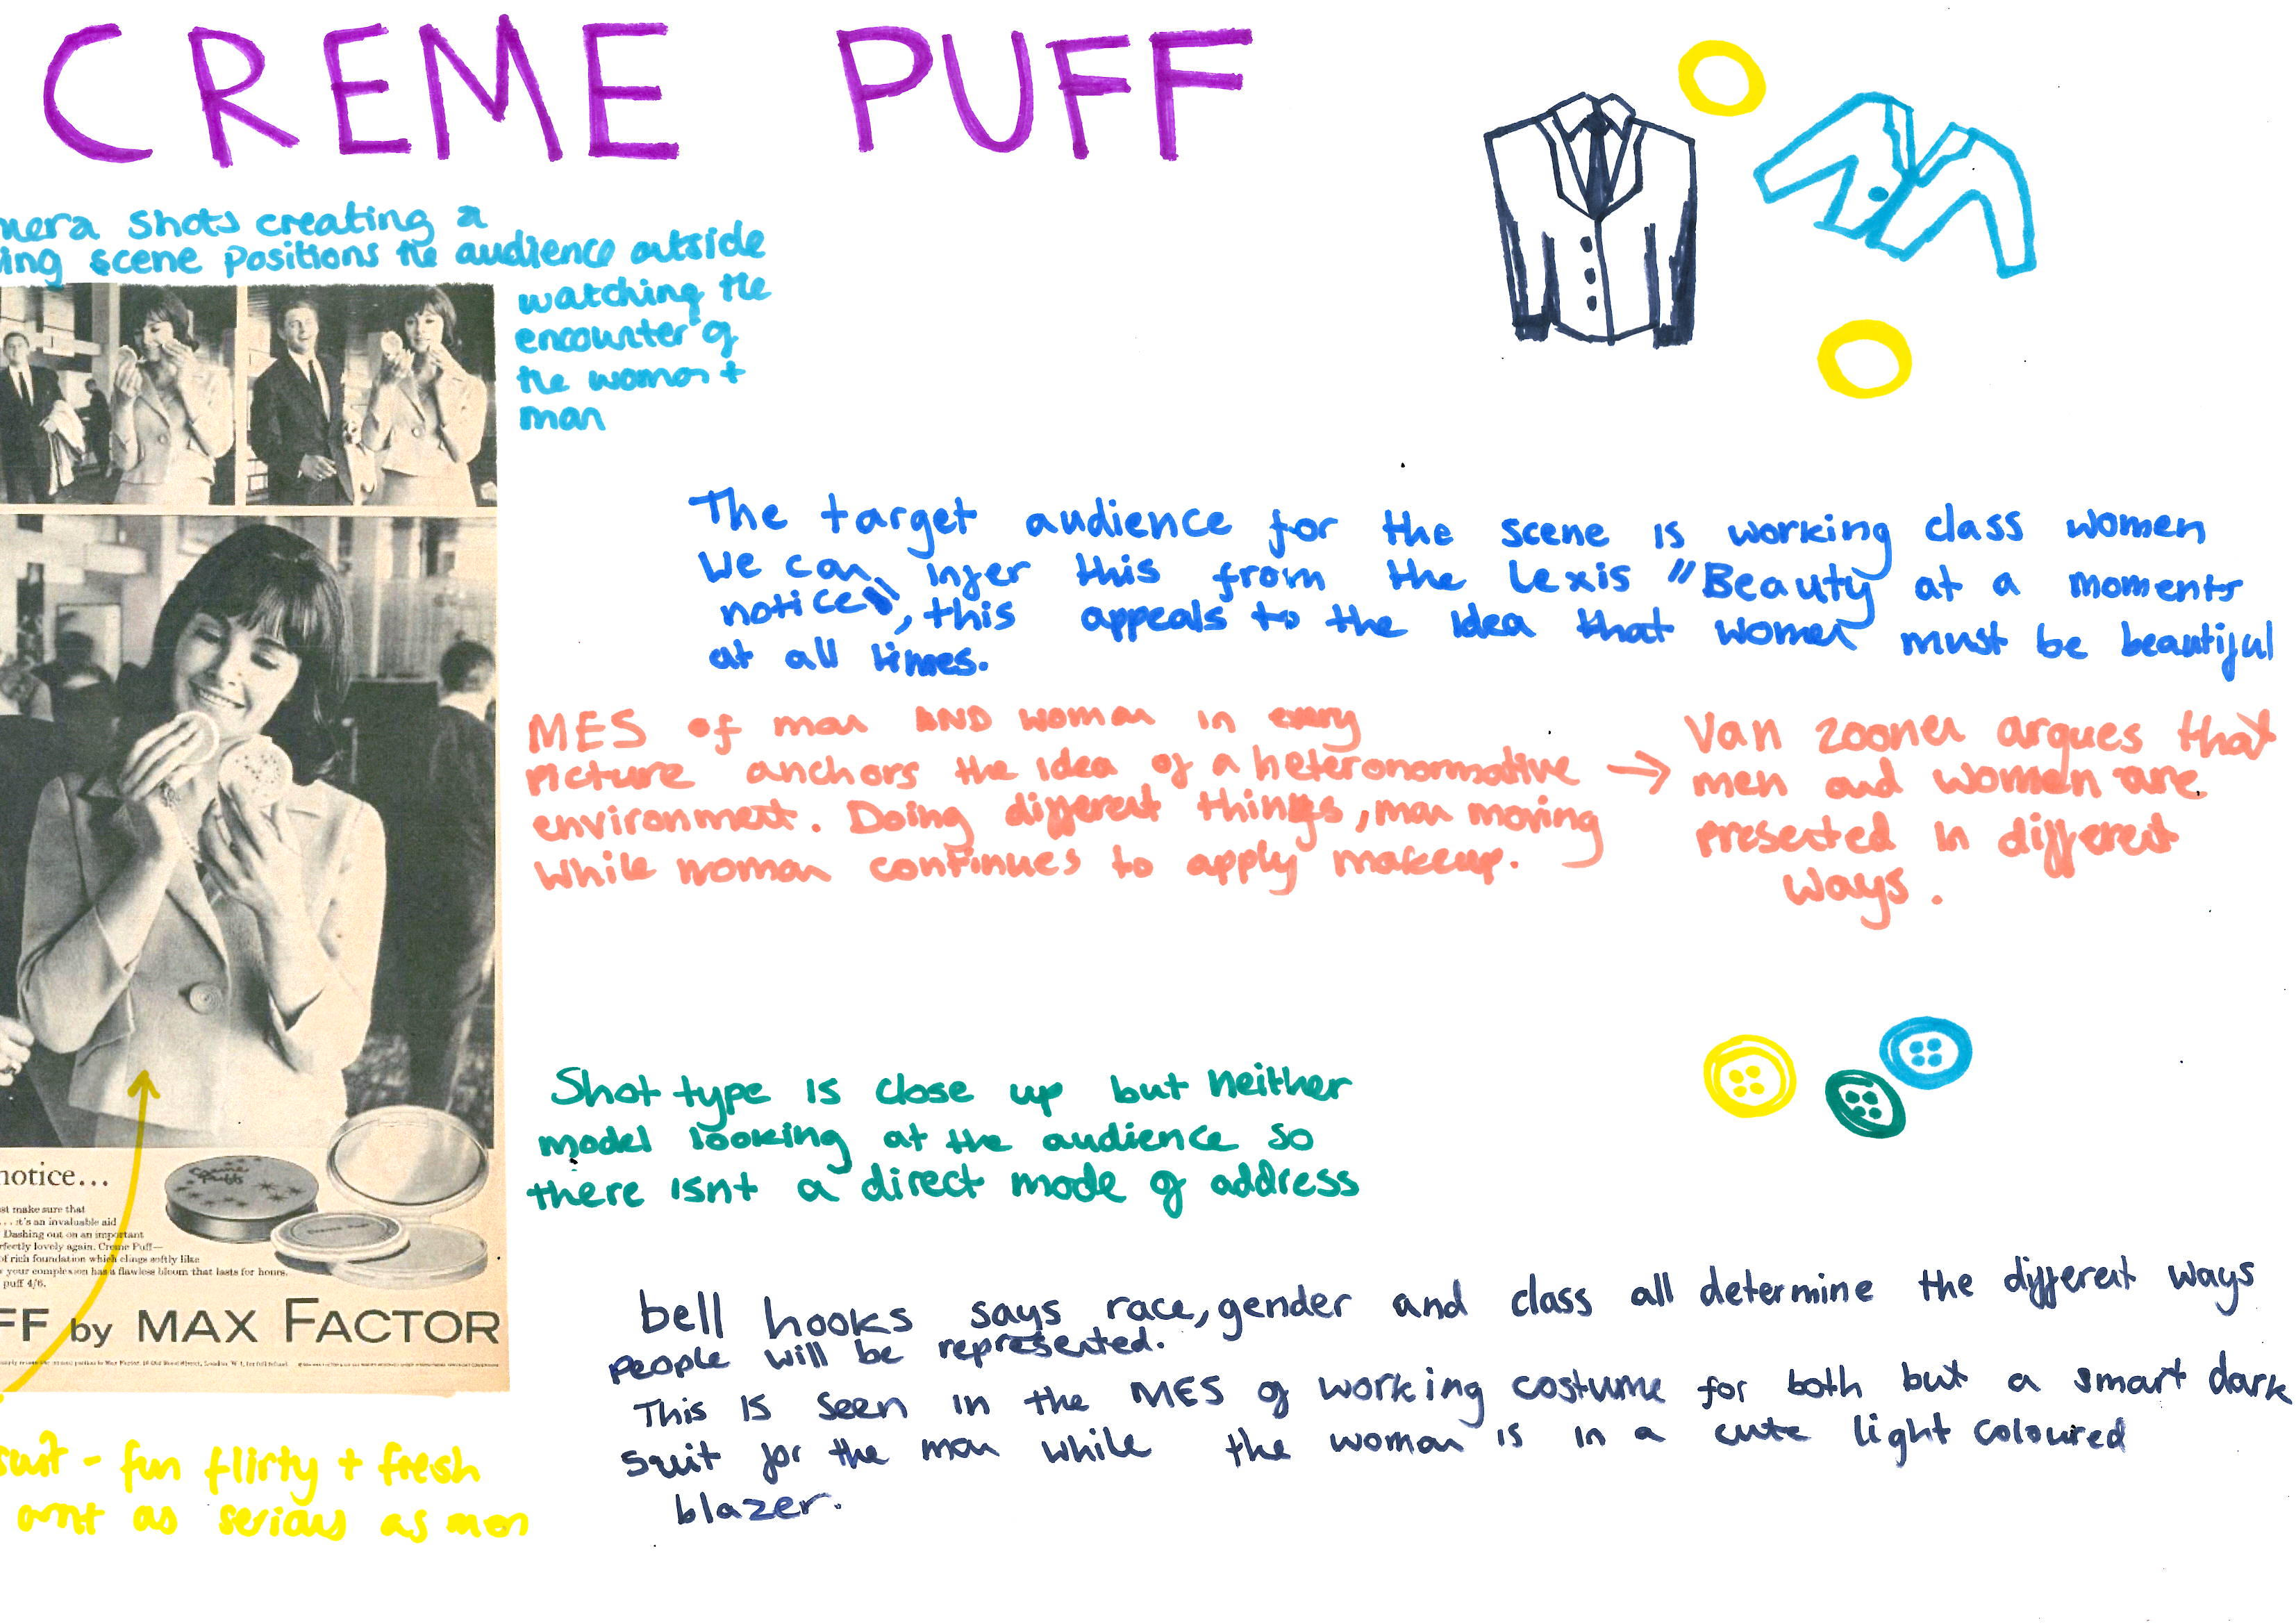 CREME PUFF
mera shots creating a
ing scene positions the audience outside
watching the
encounter of
the woman +
man
The target audience for the scene is working class women
We can infer this from the lexis "Beauty at a moments
notice", this appeals to the idea that women must be beautiful
at all times.
MES of man AND woman in every
picture anchors the idea of a heteronormative
environment. Doing different things, man moving
while woman continues to apply makeup.
→ Van zoonen argues that
men and women are
presented in different
ways.
Shot type is close up but neither
model looking at the audience so
there isnt a direct mode of address
notice...
st make sure that
... it's an invaluable aid
Dashing out on an important
rfectly lovely again. Creme Puff—
of rich foundation which clings softly like
your complexion has a flawless bloom that lasts for hours.
puff 4/6.
Creme
Puff
Creme Puff
FF by MAX FACTOR
bell hooks says race, gender and class all determine the different ways
people will be represented.
This is seen in the MES of working costume for both but a smart dark
suit for the man while the woman is in a cute light coloured
blazer.
suit - fun flirty + fresh
arnt as serious as men